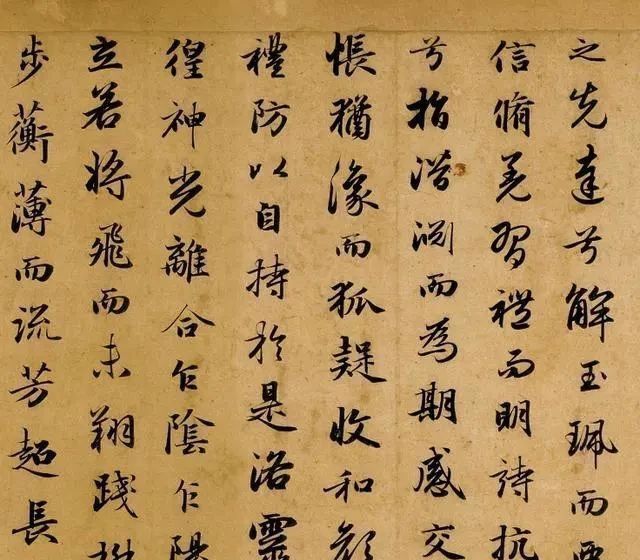 之先達兮解玉珮而要
信脩羌習禮而明詩抗
兮指潛淵而為期感交
悵猶豫而狐疑收和顏
禮防以自持於是洛靈
徨神光離合乍陰乍陽
立若將飛而未翔踐
步蘅薄而流芳超長